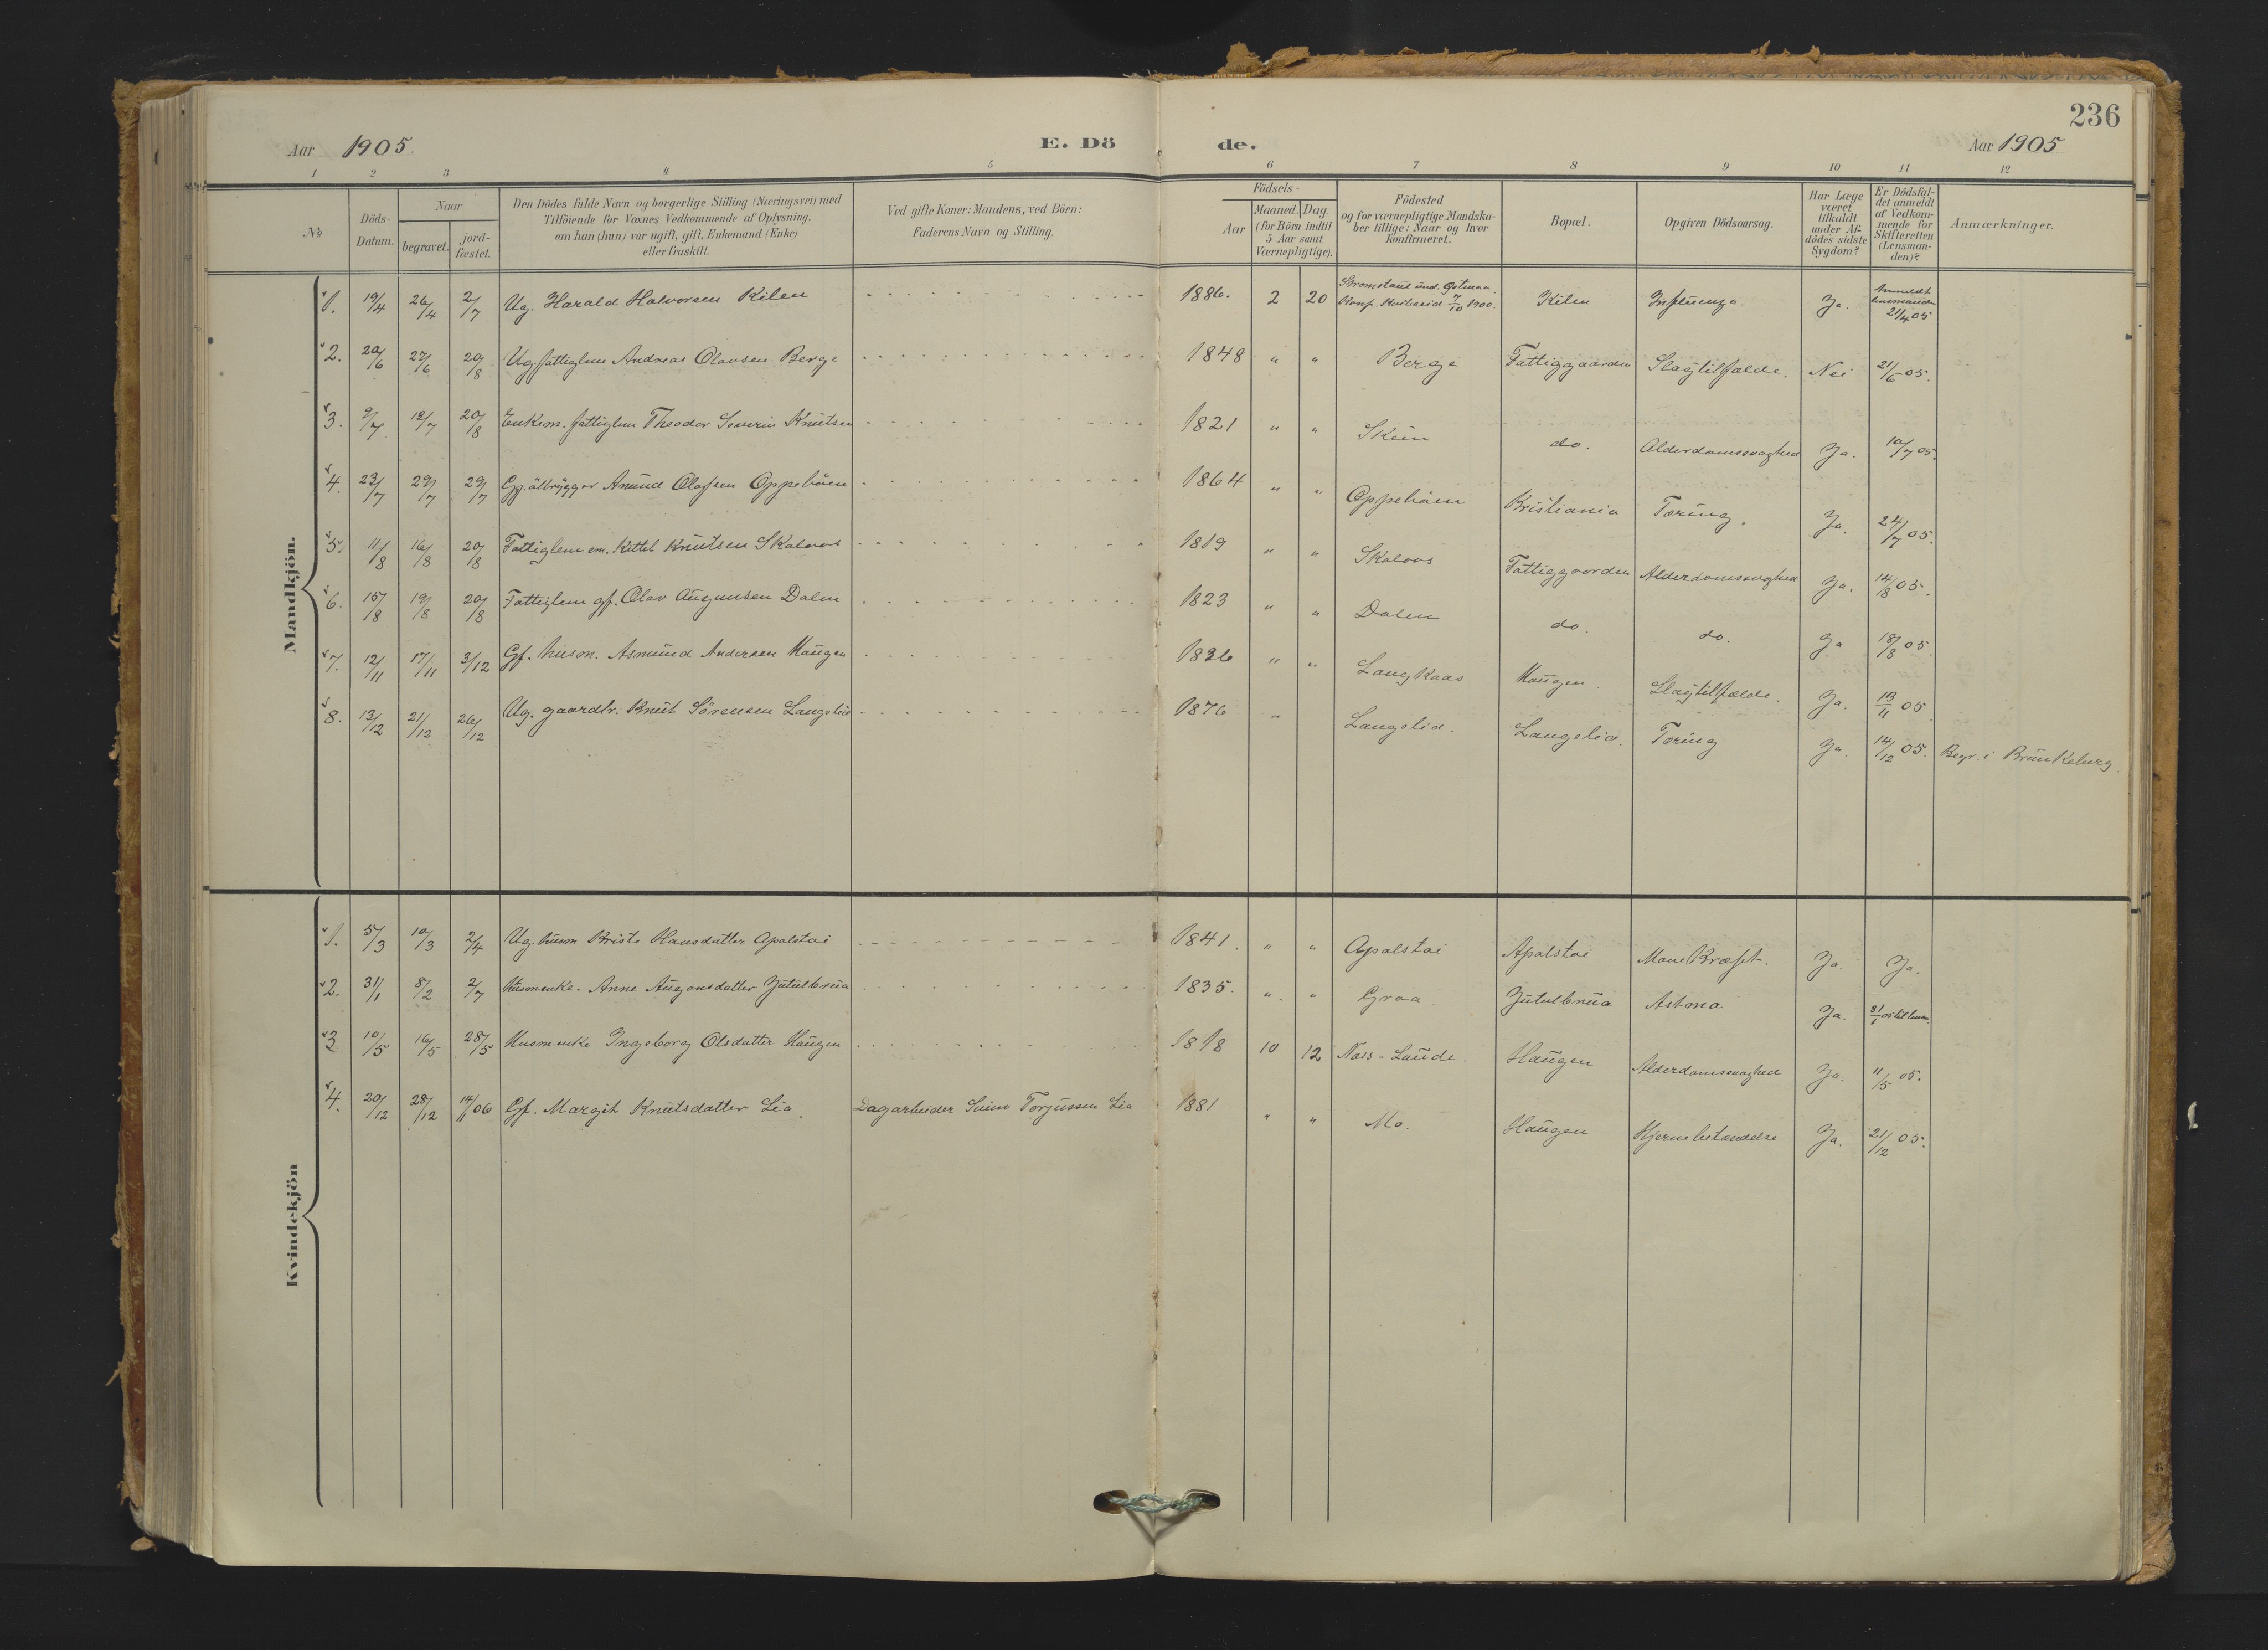 236
Aar 1905. E. Dö de. Aar 1905
1 2 3 4 5 6 7 8 9 10 11 12
No.
Döds-
Datum.
Naar
begravet.
jord-
fæstet.
Den Dödes fulde Navn og borgerlige Stilling (Næringsvei) med
Tilföiende for Voxnes Vedkommende af Oplysning,
om han (hun) var ugift, gift, Enkemand (Enke)
eller fraskilt.
Ved gifte Koner: Mandens, ved Börn:
Faderens Navn og Stilling.
Födsels-
Aar
Maaned. Dag.
(for Börn indtil
5 Aar samt
Værnepligtige).
Födested
og for værnepligtige Mandska-
ber tillige: Naar og hvor
konfirmeret.
Bopæl.
Opgiven Dödsaarsag.
Har Læge
været
tilkaldt
under Af-
dödes sidste
Sygdom?
Er Dödsfal-
det anmeldt
af Vedkom-
mende for
Skifteretten
(Lensman-
den)?
Anmærkninger.
Mandkjön.
1. 19/4 26/4 2/7 Ug. Harald Halvorsen Kilen 1886. 2 20 Konf. Kviteseid 7/10 1900. Kilen Influenza. Ja. Anmeldt lensmanden 21/4 05
2. 20/6 27/6 20/8 Ug. fattiglem Andreas Olavsen Berge 1848 " " Berge Fattiggaarden Slagtilfælde. Nei 21/6 05.
3. 9/7 12/7 20/8 Enkem. fattiglem Theodor Severin Knutsen 1821 " " Skien do. Alderdomssvaghed Ja. 10/7 05.
4. 23/7 29/7 29/7 Gf. ölbrygger Amund Olafsen Oppeböen 1864 " " Oppeböen Kristiania Tæring. Ja. 24/7 05.
5. 11/8 16/8 20/8 Fattiglem em. Kittel Knutsen Skalaas 1819 " " Skalaas Fattiggaarden Alderdomssvaghed Ja. 14/8 05.
6. 15/8 19/8 20/8 Fattiglem gf. Olav Augunsen Dalen 1823 " " Dalen do. do. Ja 18/8 05
7. 12/11 17/11 3/12 Gf. husm. Asmund Andersen Haugen 1826 " " Langkaas Haugen Slagtilfælde. Ja. 13/11 05
8. 13/12 21/12 26/12 Ug. gaardbr. Knut Sörensen Langelid 1876 " Langelid. Langelid. Tæring Ja. 14/12 05. Begr. i Brunkeberg.
Kvindekjön
1. 5/3 10/3 2/4 Ug. husm Kriste Hansdatter Apalstøi 1841. " " Apalstøi Apalstøi Mavekræft. Ja. Ja.
2. 31/1 8/2 2/7 Husmenke. Anne Augonsdatter Jutulbrua 1835. " " Graa. Jutulbrua Astma Ja. 31/1 05 til lensm.
3 10/5 16/5 28/5 Husm.enke Ingeborg Olsdatter Haugen 1818 10 12 Næs-Laude. Haugen Alderdomssvaghed Ja. 11/5 05.
4. 20/12 28/12 14/1 06 Gf. Margit Knutsdatter Lia. Dagarbeider Sveinn Torjussen Lia 1881 " " Mo. Haugen Hjernebetændelse Ja. 21/12 05.